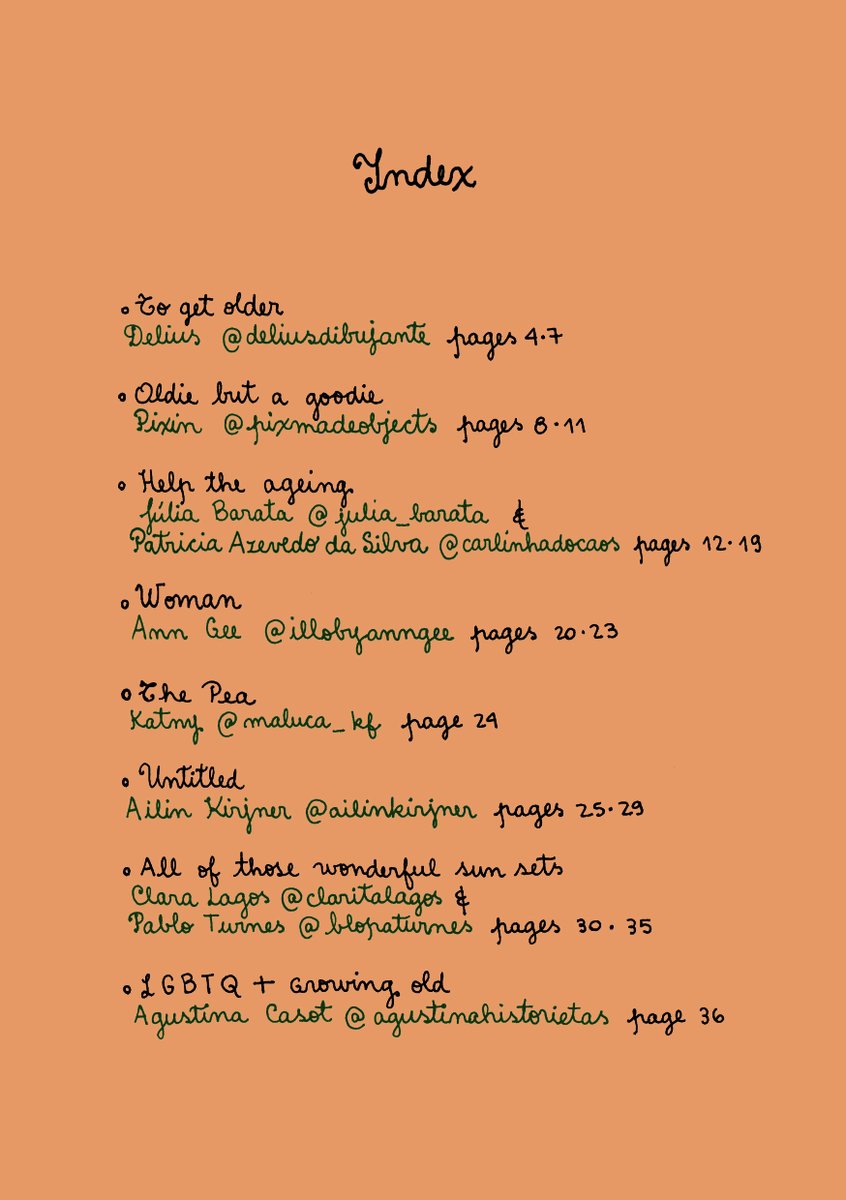 Index
To get older
Delius @deliusdibujante pages 4·7
Oldie but a goodie
Pixin @pixmadeobjects pages 8·11
Help the ageing
Júlia Barata @julia_barata &
Patricia Azevedo da Silva @carlinhadocaos pages 12·19
Woman
Ann Gee @illobyanngee pages 20·23
The Pea
Katny @maluca_kf page 24
Untitled
Ailin Kirjner @ailinkirjner pages 25·29
All of those wonderful sun sets
Clara Lagos @claritalagos &
Pablo Turnes @blopaturnes pages 30·35
LGBTQ + Growing old
Agustina Casot @agustinahistorietas page 36